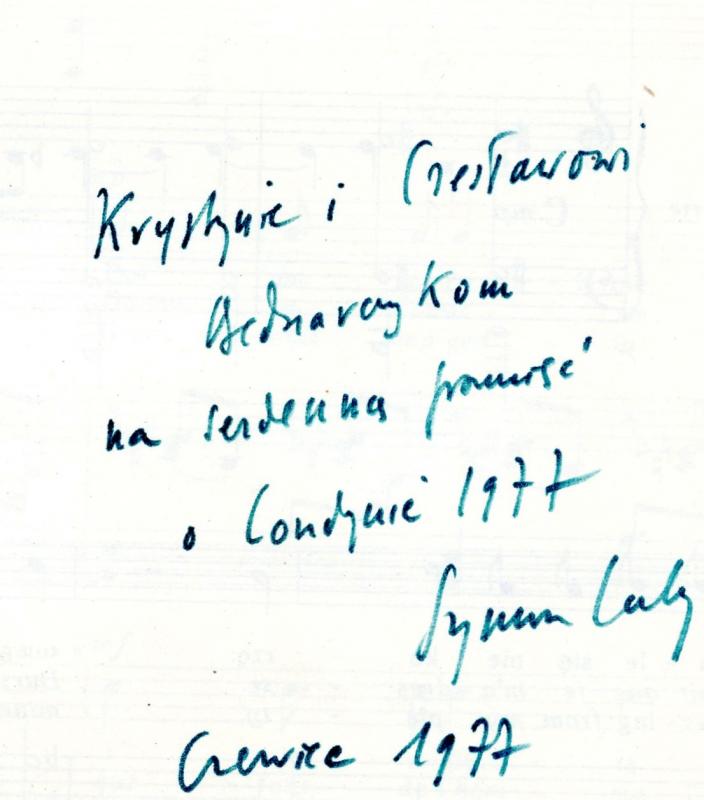 Krystynie i Czesławowi
Bednarczykom
na serdeczną pamięć
o Londynie 1977
Szymon Laks
Czerwiec 1977